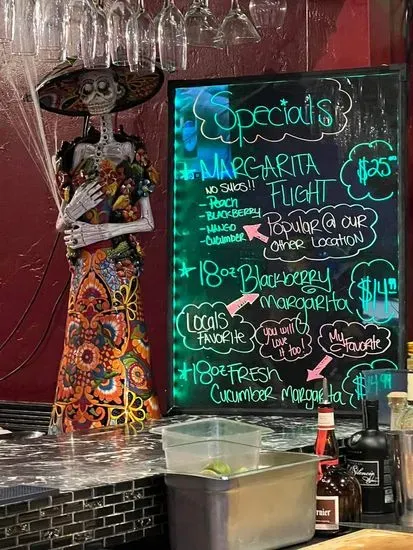 Specials
* MARGARITA FLIGHT $25⁰⁰
NO SUBS!!
- Peach
- BLACKBERRY
- MANGO
- CUCUMBER
Popular @ our
other location
* 18oz Blackberry
margarita
Locals
FAVORITE
you will
love it too!
My
FAVORITE
* 18oz FRESH
Cucumber margarita